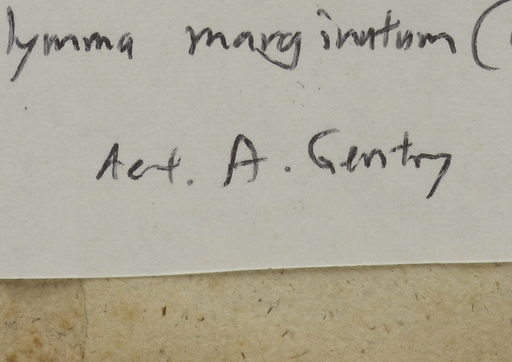 lymma marginatum (
det. A. Gentry